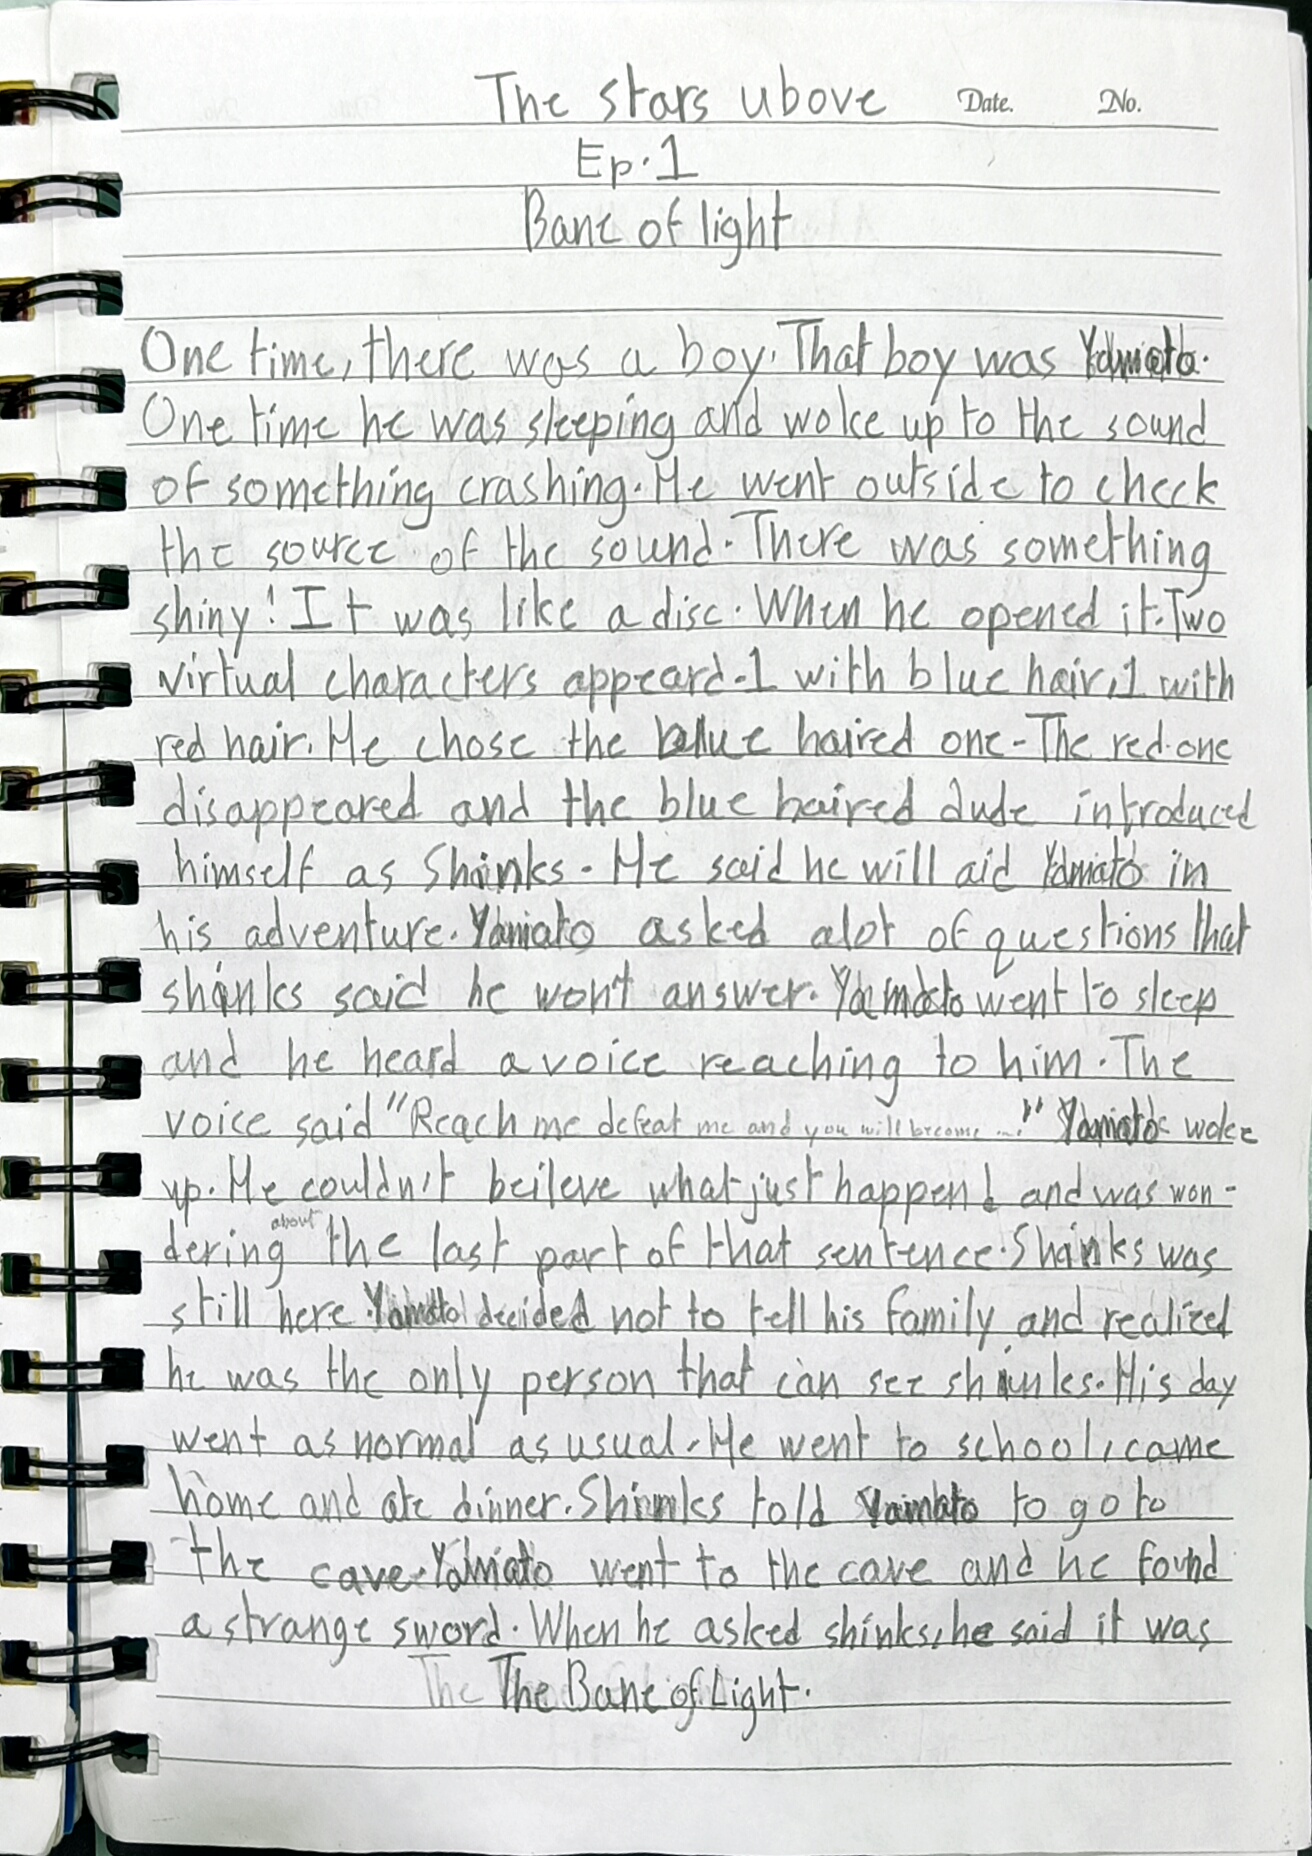 The stars ubove
Date. No.
Ep.1
Bane of light
One time, there was a boy. That boy was Yamato.
One time he was sleeping and woke up to the sound
of something crashing. He went outside to check
the source of the sound. There was something
shiny! It was like a disc. When he opened it. Two
virtual characters appeard. 1 with blue hair, 1 with
red hair. He chose the blue haired one. The red one
disappeared and the blue haired dude introduced
himself as Shinks. He said he will aid Yamato in
his adventure. Yamato asked alot of questions that
shinks said he won't answer. Yamato went to sleep
and he heard a voice reaching to him. The
voice said "Reach me defeat me and you will become ..." Yamato woke
up. He couldn't beileve what just happend and was won-
dering about the last part of that sentence. Shinks was
still here. Yamato decided not to tell his family and realized
he was the only person that can see shinks. His day
went as normal as usual. He went to school, came
home and ate dinner. Shinks told Yamato to go to
the cave. Yamato went to the cave and he found
a strange sword. When he asked shinks, he said it was
The Bane of Light.